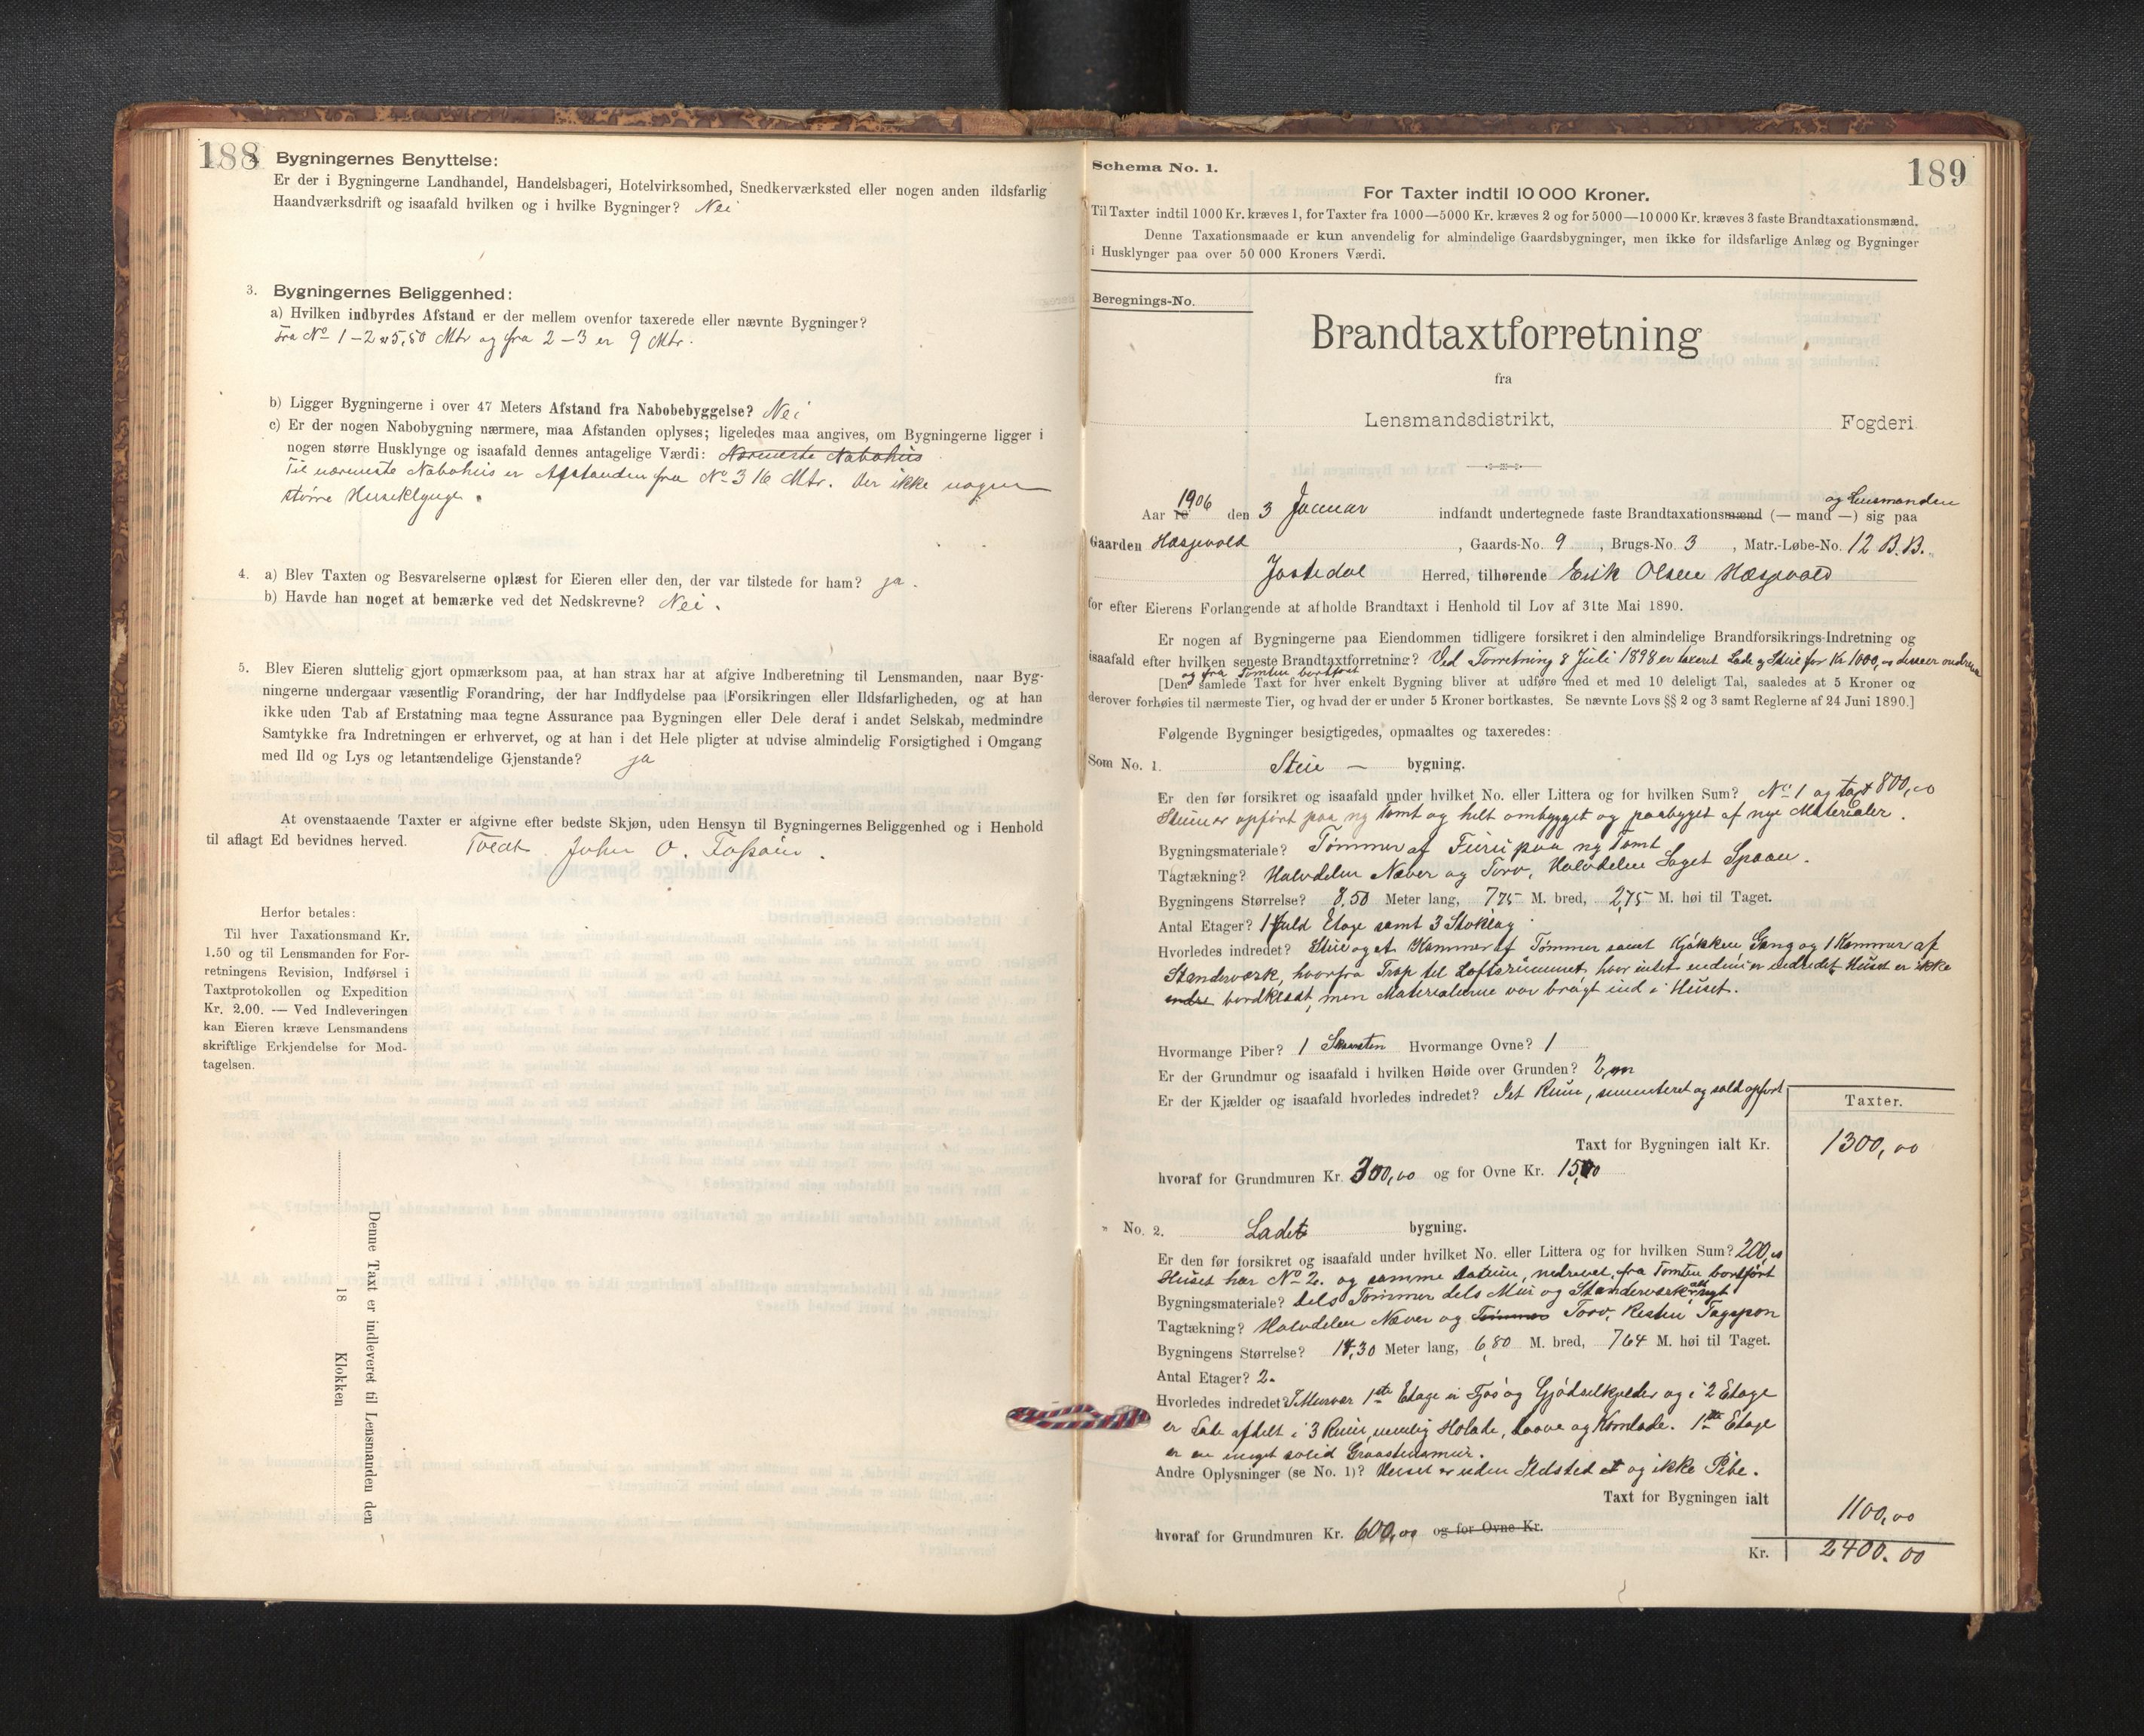 188
Bygningernes Benyttelse:
Er der i Bygningerne Landhandel, Handelsbageri, Hotelvirksomhed, Snedkerværksted eller nogen anden ildsfarlig
Haandværksdrift og isaafald hvilken og i hvilke Bygninger? Nei
3. Bygningernes Beliggenhed:
a) Hvilken indbyrdes Afstand er der mellem ovenfor taxerede eller nævnte Bygninger?
Fra No 1-2 er 5,50 Mtr og fra 2-3 er 9 Mtr.
b) Ligger Bygningerne i over 47 Meters Afstand fra Nabobebyggelse? Nei
c) Er der nogen Nabobygning nærmere, maa Afstanden oplyses; ligeledes maa angives, om Bygningerne ligger i
nogen større Husklynge og isaafald dennes antagelige Værdi: Nærmeste Nabohus
Til nærmeste Nabohus er Afstanden fra No 3 16 Mtr. Der ikke nogen
større Huseklynge.
4. a) Blev Taxten og Besvarelserne oplæst for Eieren eller den, der var tilstede for ham? ja.
b) Havde han noget at bemærke ved det Nedskrevne? Nei.
5. Blev Eieren sluttelig gjort opmærksom paa, at han strax har at afgive Indberetning til Lensmanden, naar Byg-
ningerne undergaar væsentlig Forandring, der har Indflydelse paa Forsikringen eller Ildsfarligheden, og at han
ikke uden Tab af Erstatning maa tegne Assurance paa Bygningen eller Dele deraf i andet Selskab, medmindre
Samtykke fra Indretningen er erhvervet, og at han i det Hele pligter at udvise almindelig Forsigtighed i Omgang
med Ild og Lys og letantændelige Gjenstande? ja
At ovenstaaende Taxter er afgivne efter bedste Skjøn, uden Hensyn til Bygningernes Beliggenhed og i Henhold
til aflagt Ed bevidnes herved. John O.
Herfor betales:
Til hver Taxationsmand Kr.
1.50 og til Lensmanden for For-
retningens Revision, Indførsel i
Taxtprotokollen og Expedition
Kr. 2.00. — Ved Indleveringen
kan Eieren kræve Lensmandens
skriftlige Erkjendelse for Mod-
tagelsen.
Denne Taxt er indleveret til Lensmanden den
18 Klokken
189
Schema No. 1.
For Taxter indtil 10 000 Kroner.
Til Taxter indtil 1000 Kr. kræves 1, for Taxter fra 1000—5000 Kr. kræves 2 og for 5000—10 000 Kr. kræves 3 faste Brandtaxationsmænd.
Denne Taxationsmaade er kun anvendelig for almindelige Gaardsbygninger, men ikke for ildsfarlige Anlæg og Bygninger
i Husklynger paa over 50 000 Kroners Værdi.
Beregnings-No.
Brandtaxtforretning
fra
Lensmandsdistrikt, Fogderi
og Lensmanden
Aar 1906 den 3 Januar indfandt undertegnede faste Brandtaxationsmænd (— mand —) sig paa
Gaarden Hæsjevold, Gaards-No. 9, Brugs-No. 3, Matr.-Løbe-No. 12 B.B.
Jostedal Herred, tilhørende Erik Olsen Hæsjevold
for efter Eierens Forlangende at afholde Brandtaxt i Henhold til Lov af 31te Mai 1890.
Er nogen af Bygningerne paa Eiendommen tidligere forsikret i den almindelige Brandforsikrings-Indretning og
isaafald efter hvilken seneste Brandtaxtforretning? Ved Forretning 8 Juli 1898 er taxeret Lade og Stue for Kr 1000,00
og fra Tomten bortført
[Den samlede Taxt for hver enkelt Bygning bliver at udføre med et med 10 deleligt Tal, saaledes at 5 Kroner og
derover forhøies til nærmeste Tier, og hvad der er under 5 Kroner bortkastes. Se nævnte Lovs §§ 2 og 3 samt Reglerne af 24 Juni 1890.]
Følgende Bygninger besigtigedes, opmaaltes og taxeredes:
Som No. 1. Stue — bygning.
Er den før forsikret og isaafald under hvilket No. eller Littera og for hvilken Sum? No 1 og taxt 800,00
Stuen er opført paa ny Tomt og helt ombygget og paabygget af nye Materialer.
Bygningsmateriale? Tømmer af Furu paa ny Tomt
Tagtækning? Halvdelen Næver og Torv, Halvdelen Saget Spaan.
Bygningens Størrelse? 8,50 Meter lang, 7,75 M. bred, 2,75 M. høi til Taget.
Antal Etager? 1 fuld Etage samt 3 Stoklag
Hvorledes indredet? Stue og et Kammer af Tømmer samt Kjøkken Gang og 1 Kammer af
Stenderværk, hvorfra Trap til Loftsrummet, hvor intet endnu er indredet. Huset er ikke
endnu bordklædt, men Materialerne var bragt ind i Huset.
Hvormange Piber? 1 Skorsten Hvormange Ovne? 1
Er der Grundmur og isaafald i hvilken Høide over Grunden? 2 m
Er der Kjælder og isaafald hvorledes indredet? Iet Rum, sementeret og solid opført
Taxter.
Taxt for Bygningen ialt Kr. 1300,00
hvoraf for Grundmuren Kr. 300,00 og for Ovne Kr. 15,00
" No. 2. Lade bygning.
Er den før forsikret og isaafald under hvilket No. eller Littera og for hvilken Sum? 200,00
Huset har No 2. og samme Datum, nedrevet, fra Tomten bortført
Bygningsmateriale? Dels Tømmer dels Mur og Stenderværk alt nyt
Tagtækning? Halvdelen Næver og Tømmer Torv, Resten Tagspon
Bygningens Størrelse? 14,30 Meter lang, 6,80 M. bred, 7,64 M. høi til Taget.
Antal Etager? 2.
Hvorledes indredet? 1ste Etage er Fjøs og Gjødselkjelder og i 2 Etage
er Lade afdelt i 3 Rum, nemlig Hølade, Laave og Kornlade. 1ste Etage
er en meget solid Graastensmur.
Andre Oplysninger (se No. 1)? Huset er uden Ildsted og ikke Pibe.
Taxt for Bygningen ialt 1100,00
hvoraf for Grundmuren Kr. 600,00 og for Ovne Kr.
Kr. 2400.00